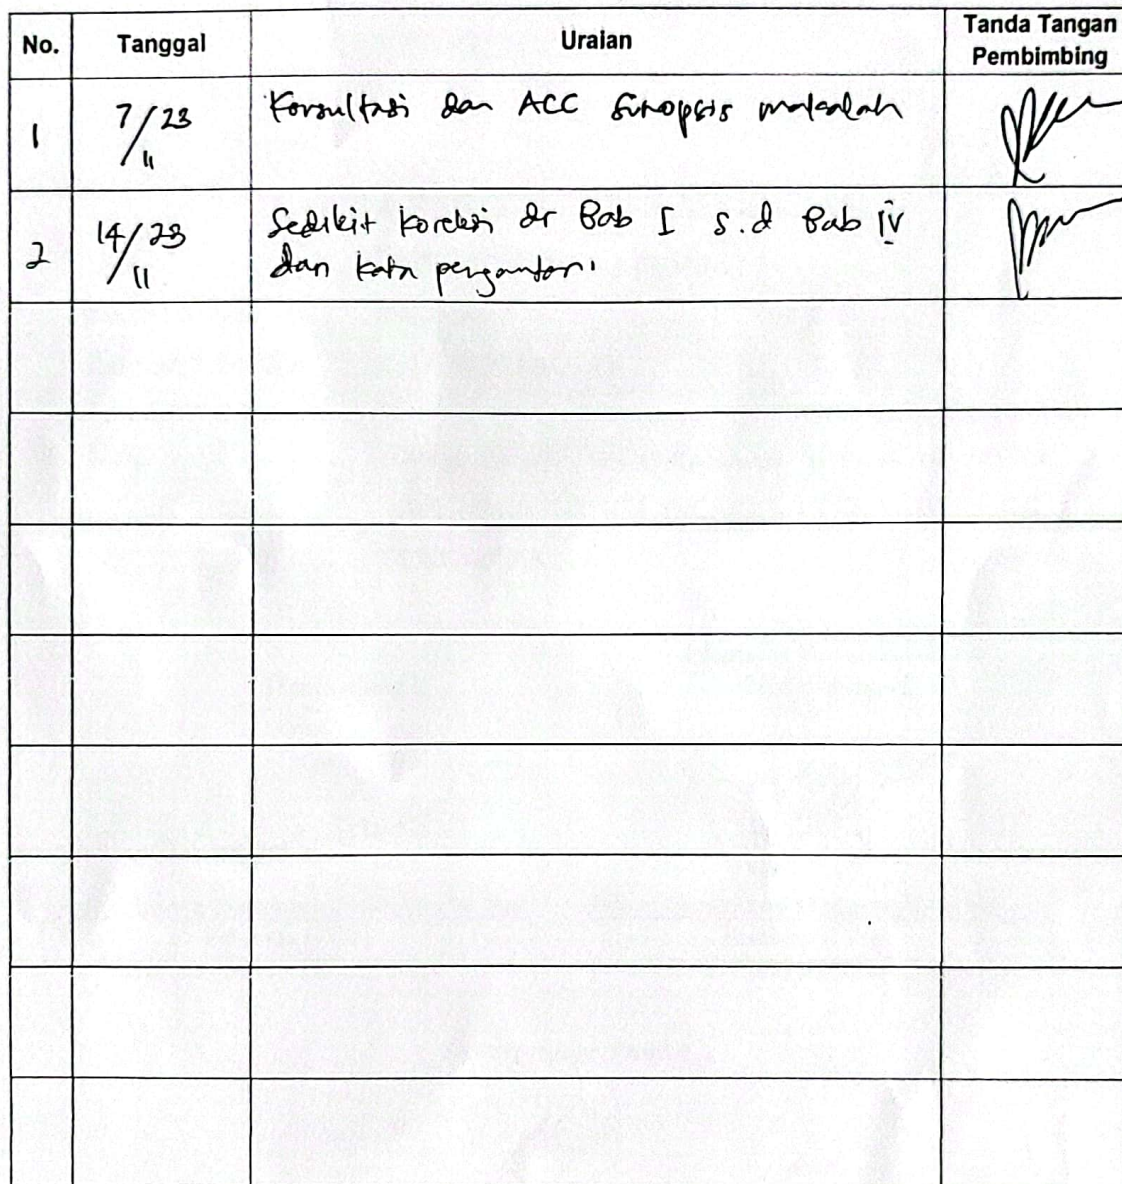 No. Tanggal Uraian Tanda Tangan
Pembimbing
1 7/23 Konsultasi dan ACC Sinopsis makalah
11
2 14/23 Sedikit koreksi dr Bab I s.d Bab IV
11 dan kata pengantar.